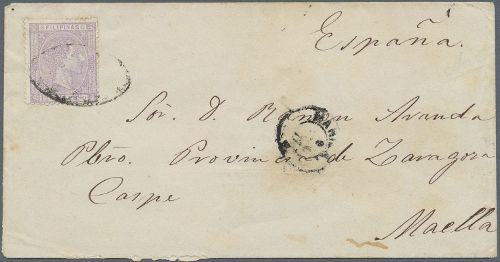 FILIPINAS
España.
Sór. D. Ramon Aranda
Pbro. Provincia de Zaragoza
Caspe
Maella